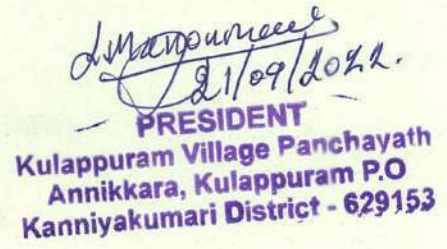 21/09/2022.
PRESIDENT
Kulappuram Village Panchayath
Annikkara, Kulappuram P.O
Kanniyakumari District - 629153